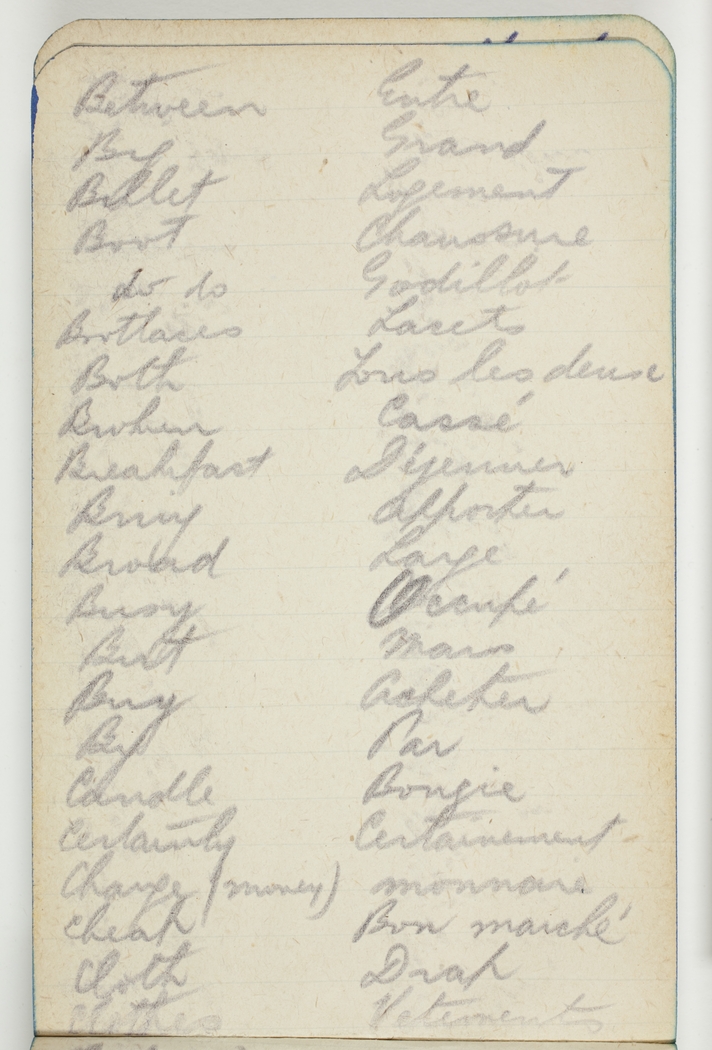 Between Entre
Big Grand
Billet Logement
Boot Chaussure
do do Godillot
Bootlaces Lacets
Both Tous les deux
Broken Cassé
Breakfast Déjeuner
Bring Apporter
Broad Large
Busy Occupé
But Mais
Buy Acheter
By Par
Candle Bougie
Certainly Certainement
Change (money) monnaie
Cheap Bon marché
Cloth Drap
Clothes Vetements